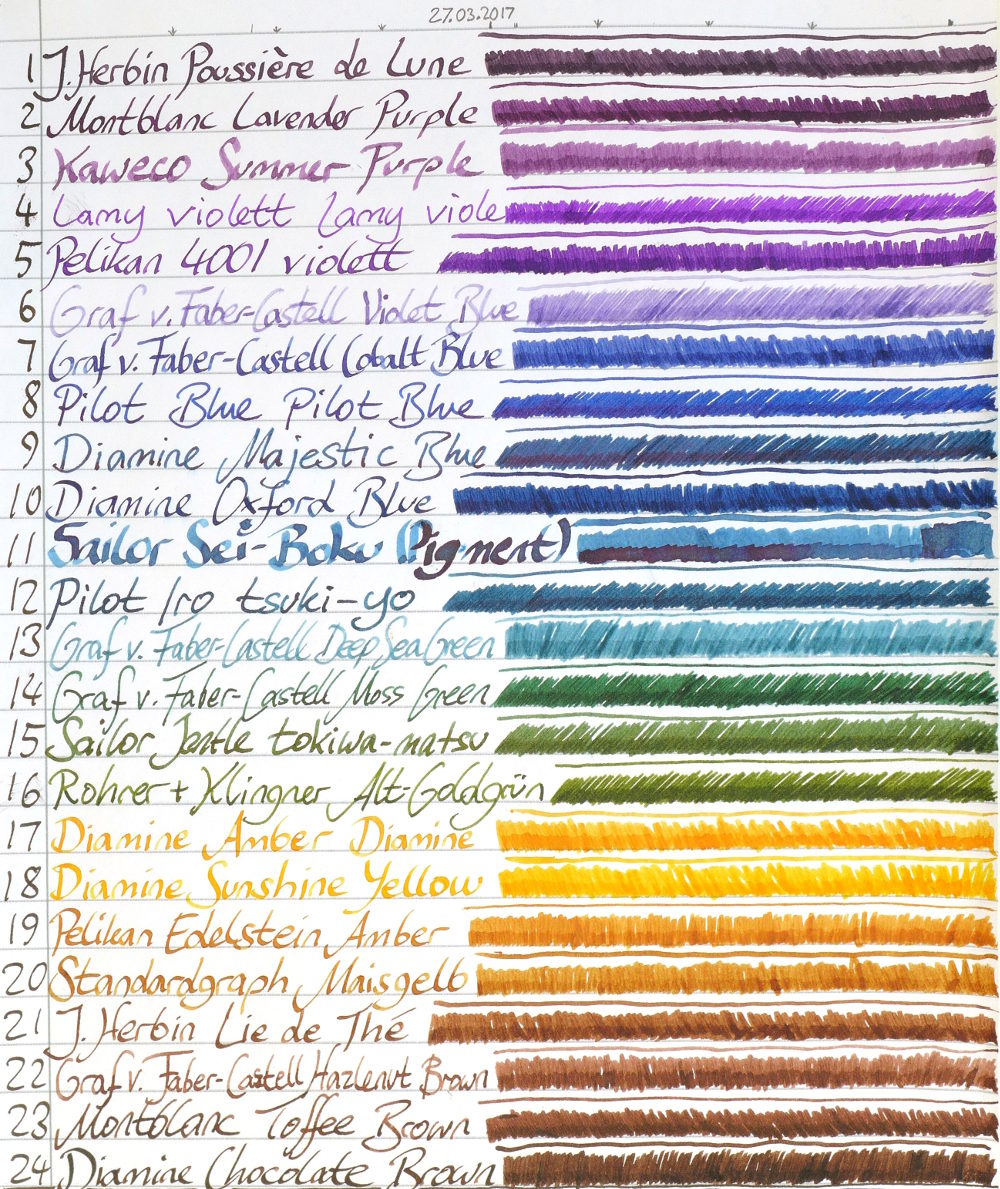 27.03.2017
1 J. Herbin Poussière de Lune
2 Montblanc Lavender Purple
3 Kaweco Summer Purple
4 Lamy violett Lamy viole
5 Pelikan 4001 violett
6 Graf v. Faber-Castell Violet Blue
7 Graf v. Faber-Castell Cobalt Blue
8 Pilot Blue Pilot Blue
9 Diamine Majestic Blue
10 Diamine Oxford Blue
11 Sailor Sei-Boku (Pigment)
12 Pilot Iro tsuki-yo
13 Graf v. Faber-Castell Deep Sea Green
14 Graf v. Faber-Castell Moss Green
15 Sailor Jentle tokiwa-matsu
16 Rohrer + Klingner Alt-Goldgrün
17 Diamine Amber Diamine
18 Diamine Sunshine Yellow
19 Pelikan Edelstein Amber
20 Standardgraph Maisgelb
21 J. Herbin Lie de Thé
22 Graf v. Faber-Castell Hazlenut Brown
23 Montblanc Toffee Brown
24 Diamine Chocolate Brown